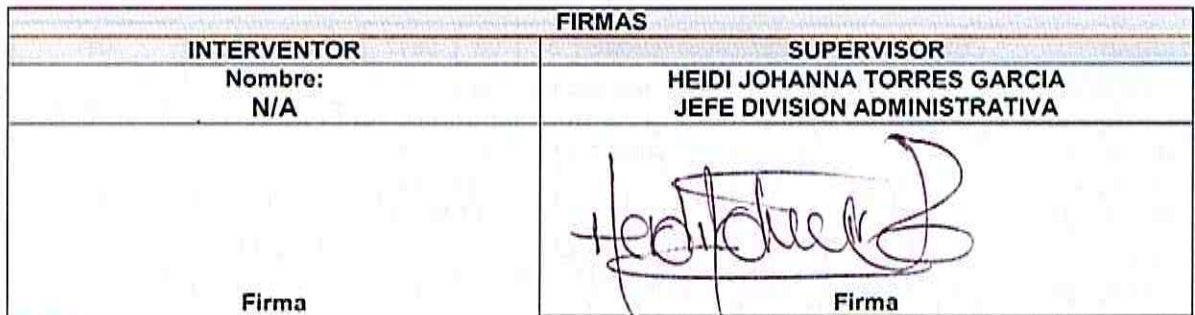 FIRMAS
INTERVENTOR
SUPERVISOR
Nombre:
N/A
HEIDI JOHANNA TORRES GARCIA
JEFE DIVISION ADMINISTRATIVA
Firma
Firma